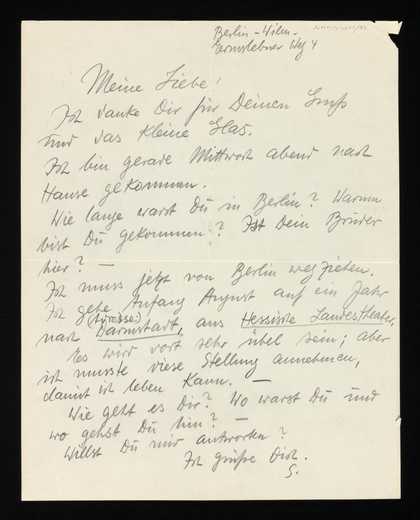 Berlin-Wilm.
Weg 4
Meine Liebe!
Ich danke Dir für Deinen Gruß
und das kleine Glas.
Ich bin gerade Mittwoch abend nach
Hause gekommen.
Wie lange warst Du in Berlin? Warum
bist Du gekommen? Ist Dein Bruder
hier? —
Ich muss jetzt von Berlin weg ziehen.
Ich gehe Anfang August auf ein Jahr
(Adresse:)
nach Darmstadt, ans Hessische Landestheater,
es wird dort sehr übel sein; aber
ich musste diese Stellung annehmen,
damit ich leben kann. —
Wie geht es Dir? Wo warst Du und
wo gehst Du hin? —
Willst Du mir antworten?
Ich grüße Dich.
G.